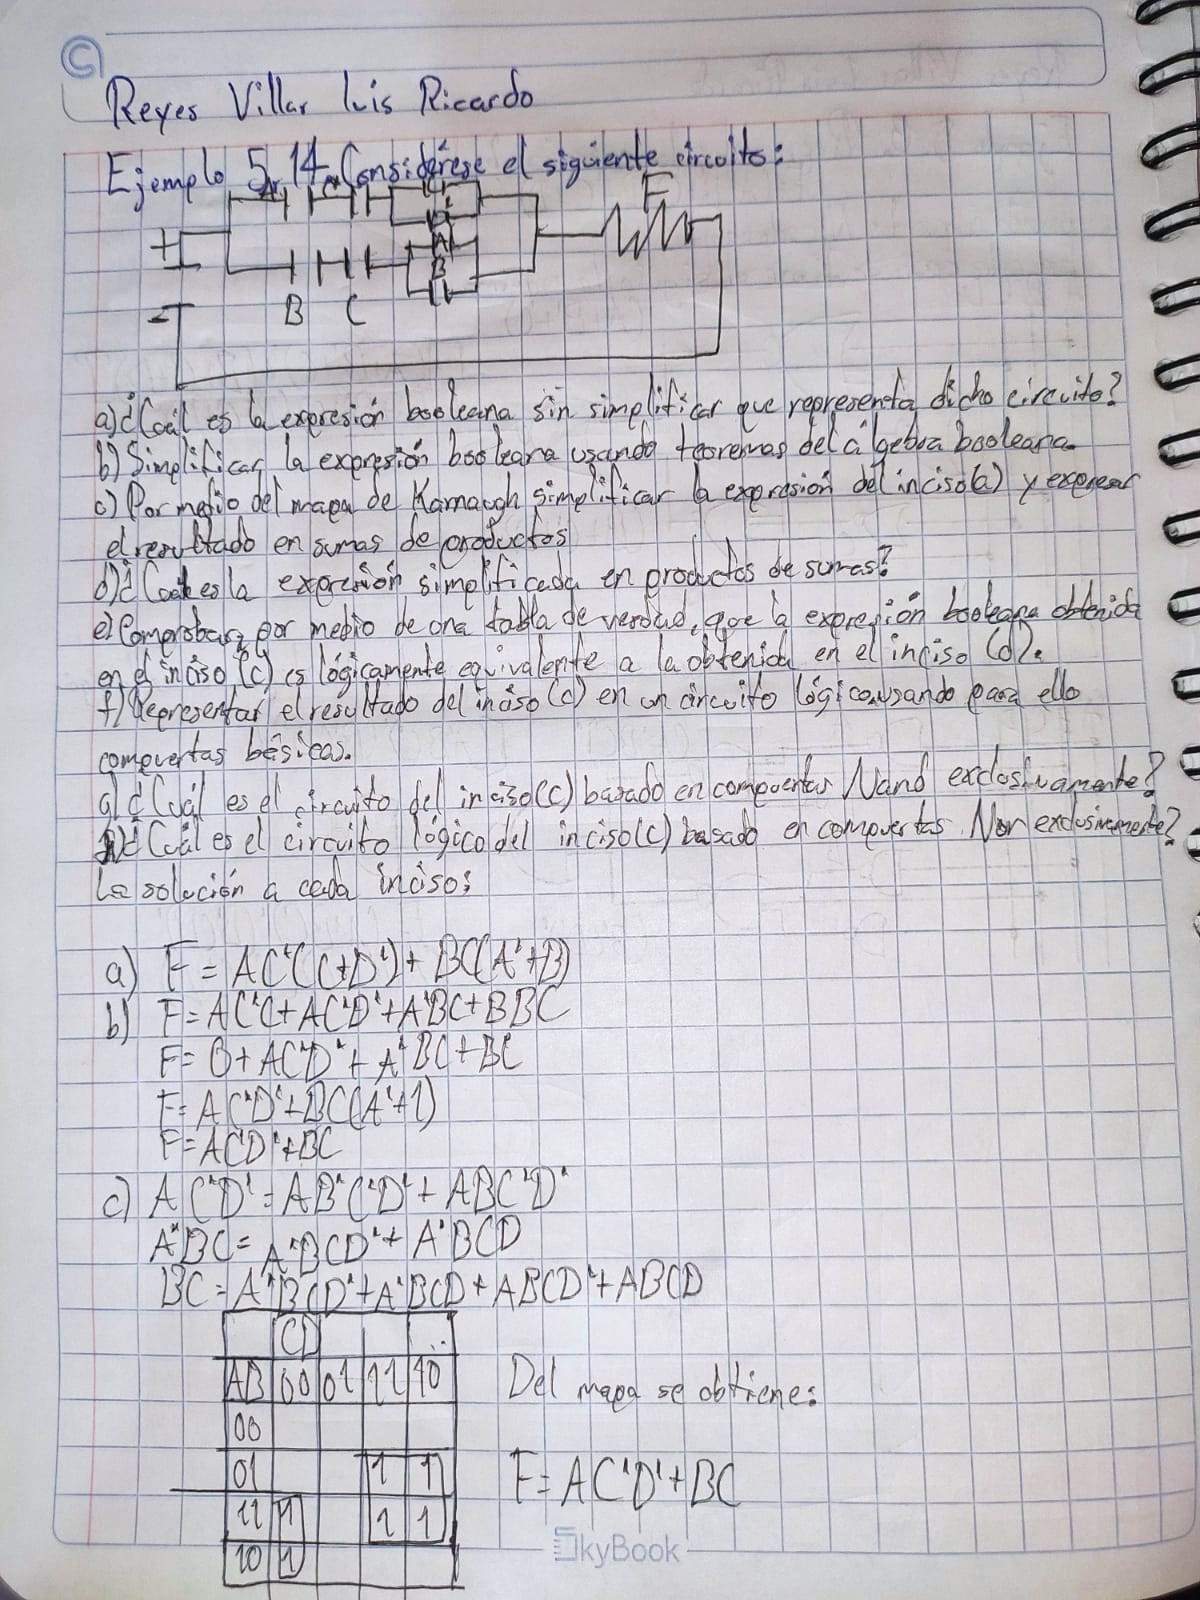 Reyes Villar Luis Ricardo
Ejemplo 5.14 Considérese el siguiente circuito:
F
+
A
B
-
B C
a) ¿Cuál es la expresión booleana sin simplificar que representa dicho circuito?
b) Simplificar la expresión booleana usando teoremas del álgebra booleana.
c) Por medio del mapa de Karnaugh simplificar la expresión del inciso (a) y expresar
el resultado en sumas de productos
d) ¿Cuál es la expresión simplificada en productos de sumas?
e) Comprobar, por medio de una tabla de verdad, que la expresión booleana obtenida
en el inciso (c) es lógicamente equivalente a la obtenida en el inciso (d).
f) Representar el resultado del inciso (c) en un circuito lógico, usando para ello
compuertas básicas.
g) ¿Cuál es el circuito del inciso (c) basado en compuertas Nand exclusivamente?
h) ¿Cuál es el circuito lógico del inciso (c) basado en compuertas Nor exclusivamente?
La solución a cada inciso:
a) F = AC'(C+D') + BC(A'+B)
b) F = AC'C + AC'D' + A'BC + BBC
F = 0 + AC'D' + A'BC + BC
F = AC'D' + BC(A'+1)
F = AC'D' + BC
c) AC'D' = AB'C'D' + ABC'D'
A'BC = A'BCD' + A'BCD
BC = A'BCD' + A'BCD + ABCD' + ABCD
CD
AB 00 01 11 10
00
01 1 1
11 1 1 1
10 1
Del mapa se obtiene:
F = AC'D' + BC
SkyBook